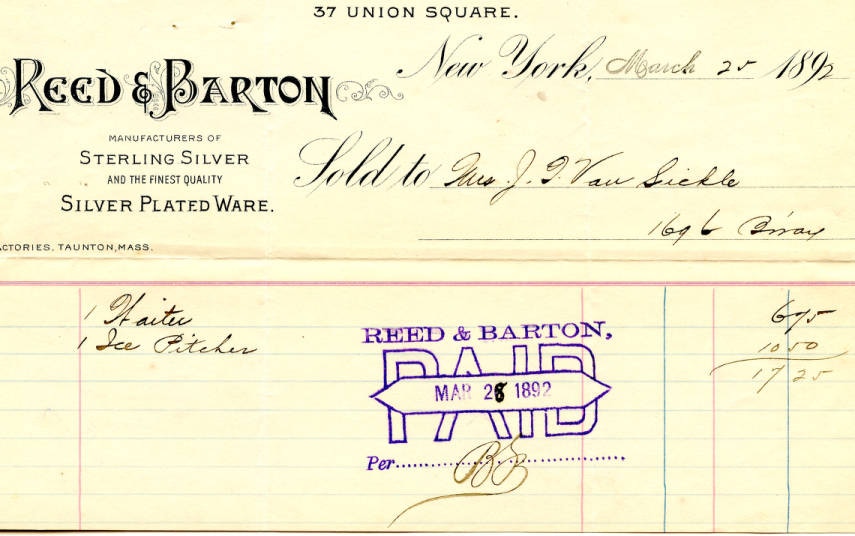 37 UNION SQUARE.
New York, March 25 1892
REED & BARTON
MANUFACTURERS OF
STERLING SILVER
AND THE FINEST QUALITY
SILVER PLATED WARE.
ACTORIES, TAUNTON, MASS.
Sold to Mrs J. T. Van Sickle
1696 B'way
1 Waiter 6 75
1 Ice Pitcher 10 50
17 25
REED & BARTON,
PAID
MAR 28 1892
Per